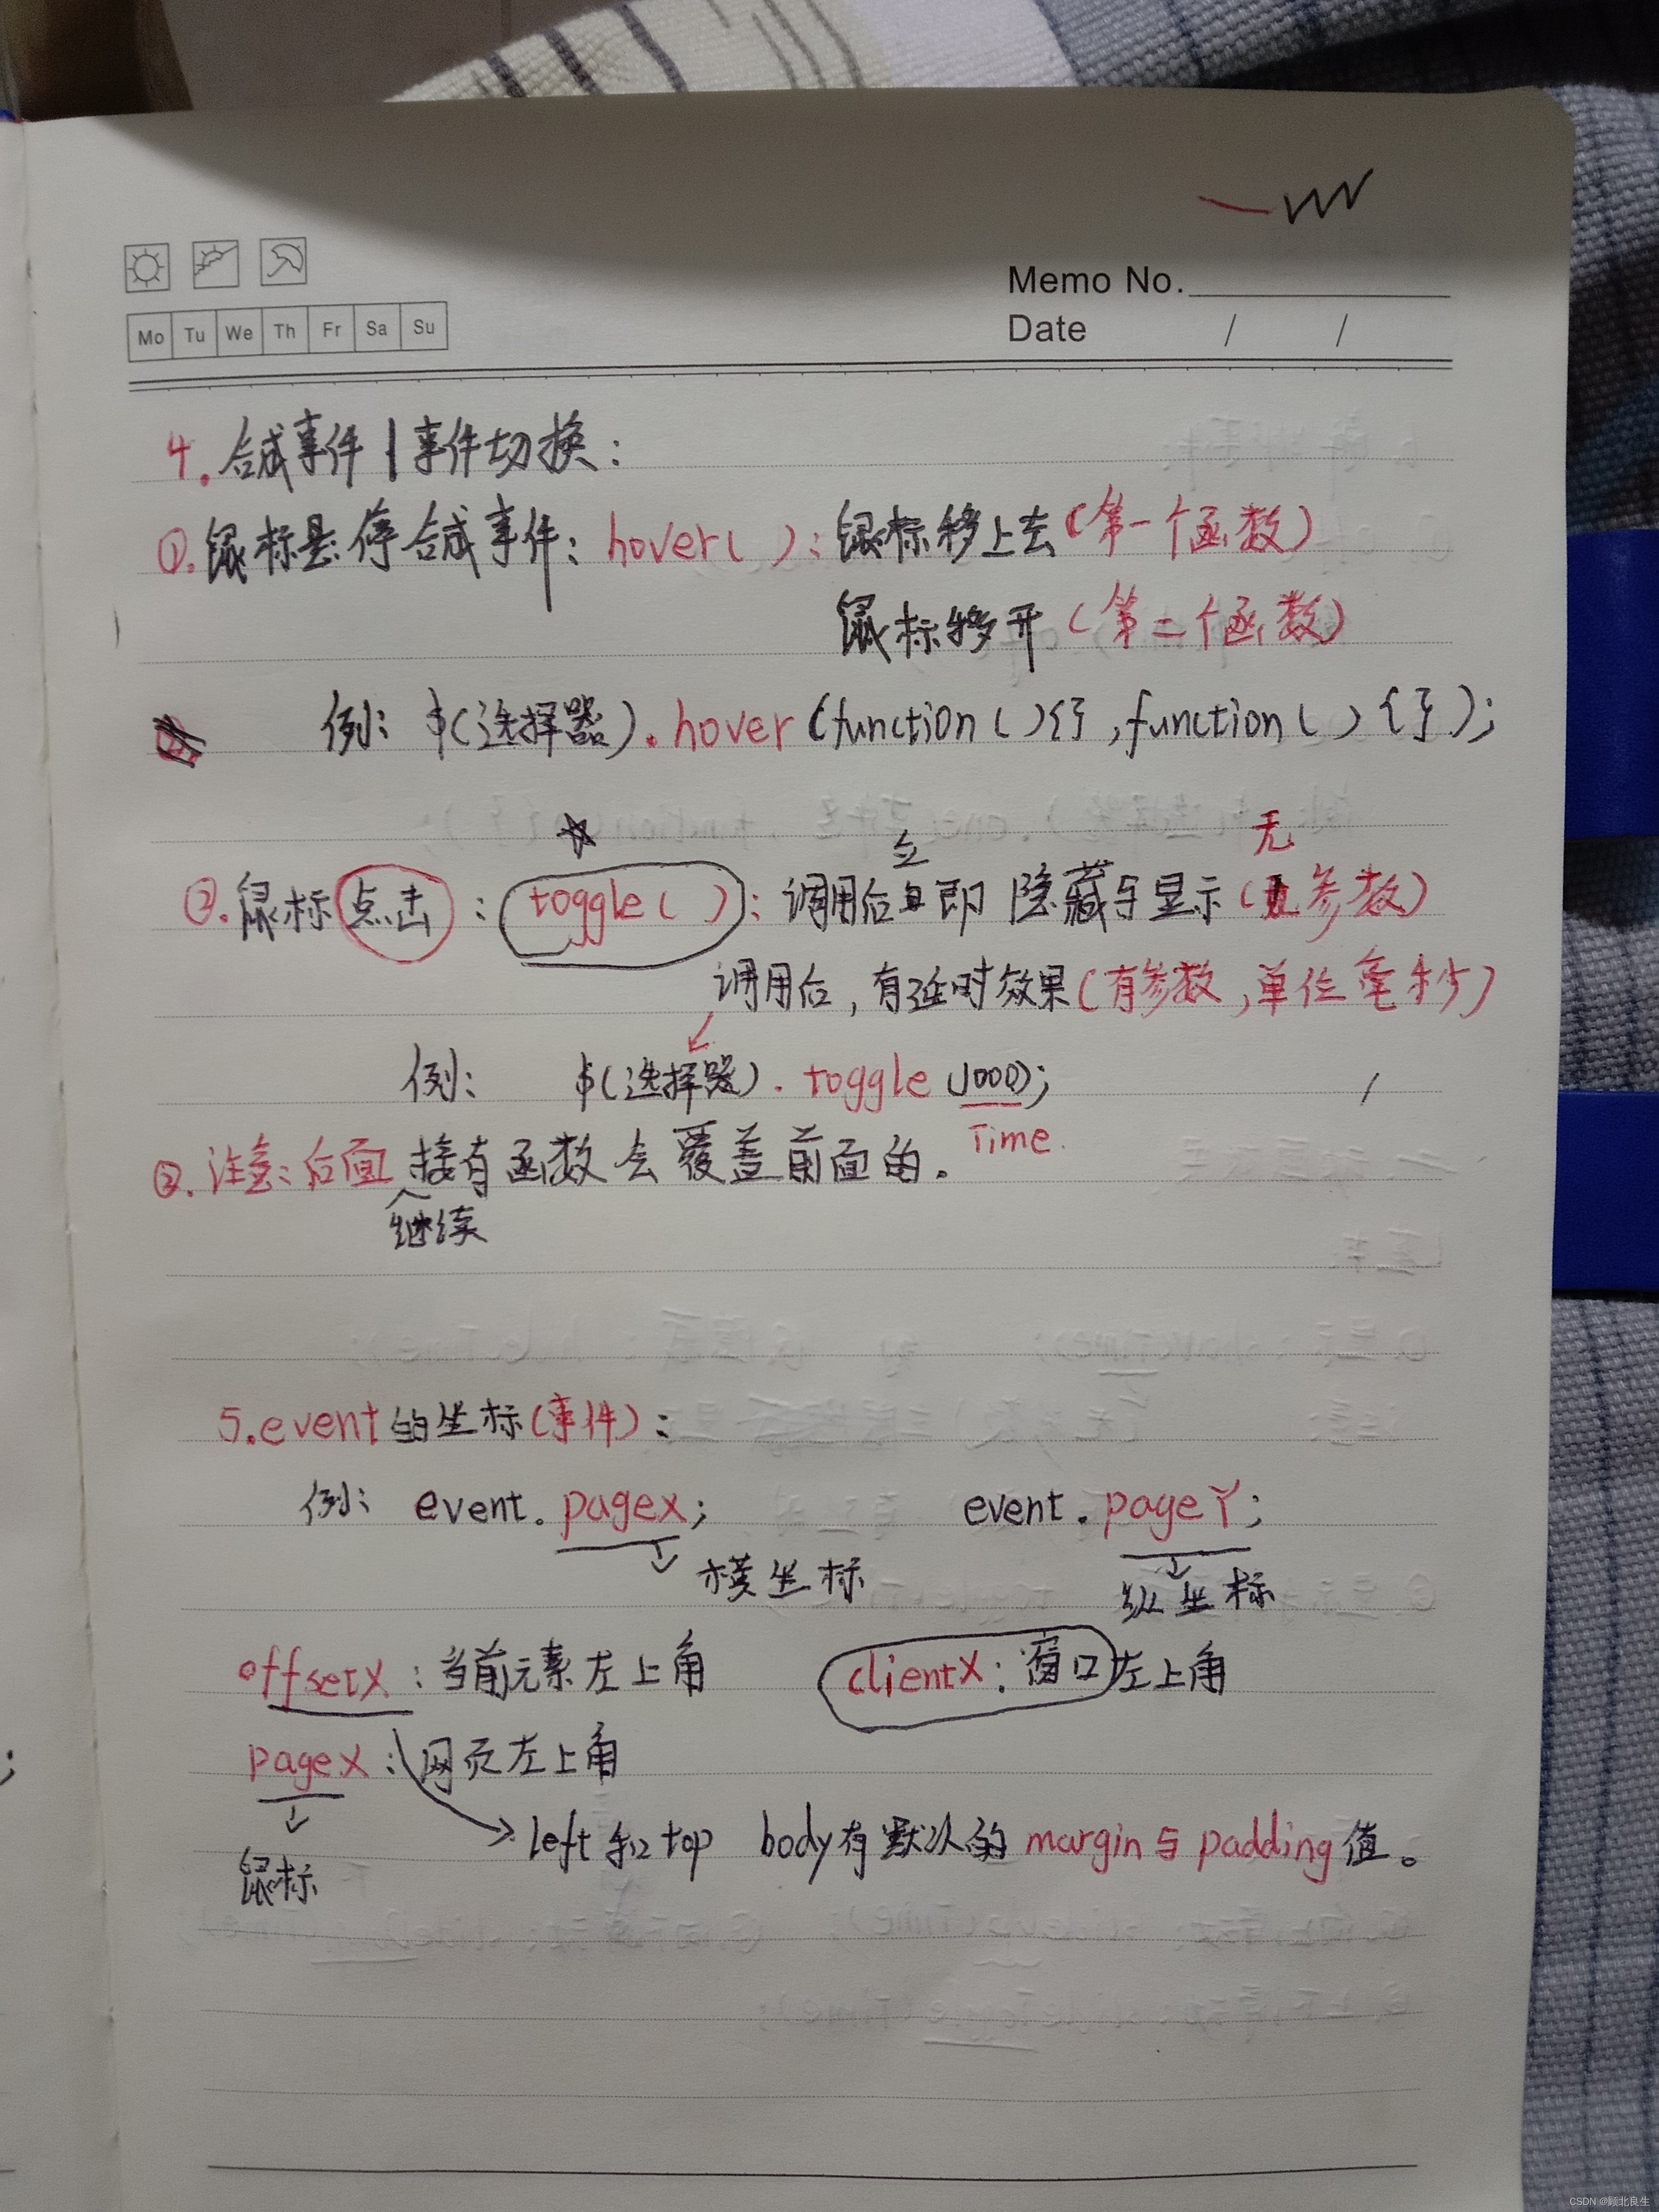 Memo No.
Mo Tu We Th Fr Sa Su
Date / /
4.合成事件|事件切换:
①.鼠标悬停合成事件:hover():鼠标移上去(第一个函数)
鼠标移开(第二个函数)
例:$(选择器).hover(function(){},function(){});
②.鼠标点击:toggle():调用后立即隐藏与显示(无参数)
调用后,有延时效果(有参数,单位毫秒)
例: $(选择器).toggle(1000);
Time.
③.注意:后面继续接有函数会覆盖前面的。
5.event的坐标(事件):
例: event.pageX; event.pageY;
横坐标 纵坐标
offsetX:当前元素左上角 clientX:窗口左上角
pageX:网页左上角
left和top body有默认的margin与padding值。
鼠标
CSDN @顾北良生